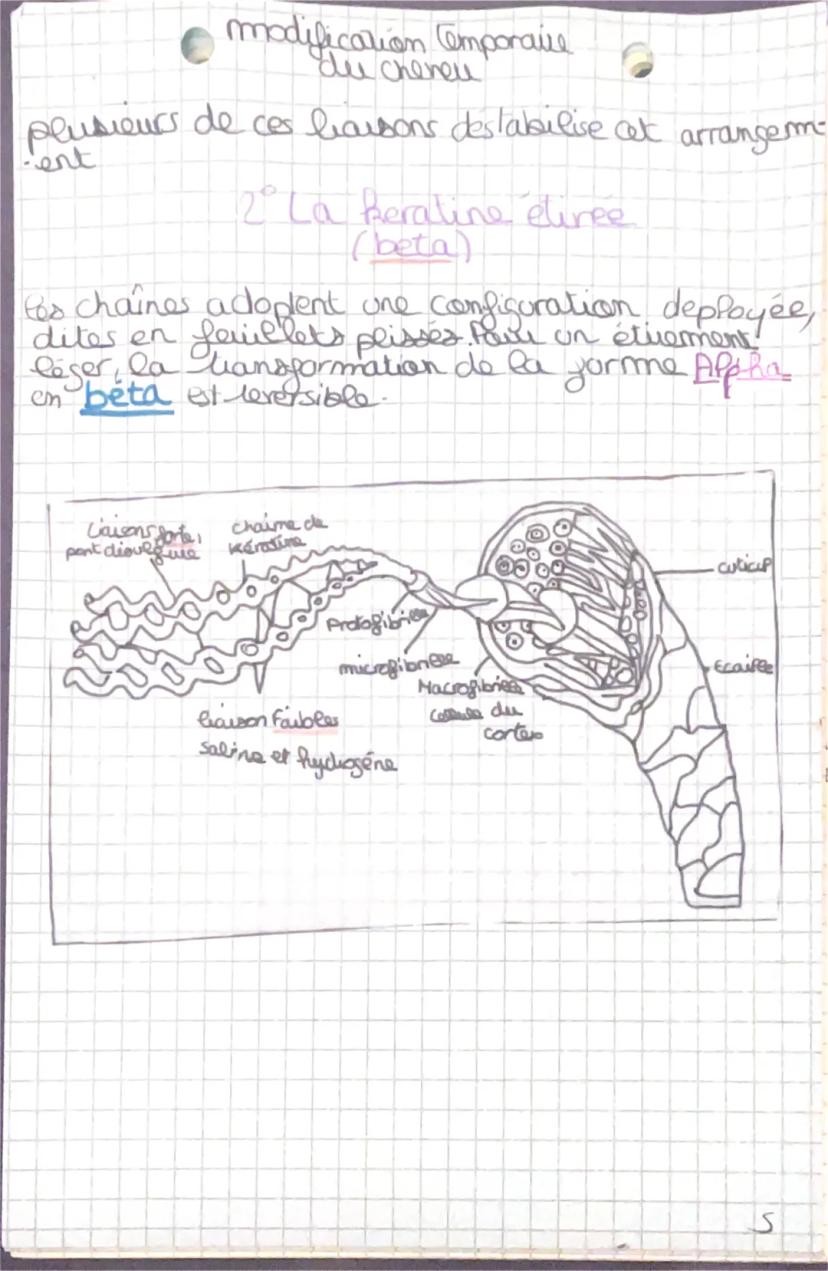 modification temporaire
du cheveu
plusieurs de ces liaisons destabilise cet arrangem-
-ent
2° La keratine étirée
(beta)
Les chaînes adoptent une configuration deployée,
dites en feuillets plissés. Pour un étirement
léger, la transformation de la forme Alpha
en béta est reversible.
Liaisons forte,
pont disulfure
chaine de
Kératine
cuticul
Protofibrille
microfibrille
Ecaille
Macrofibrille
cellule du
cortex
liaison Faibles
saline et hydrogéne
5